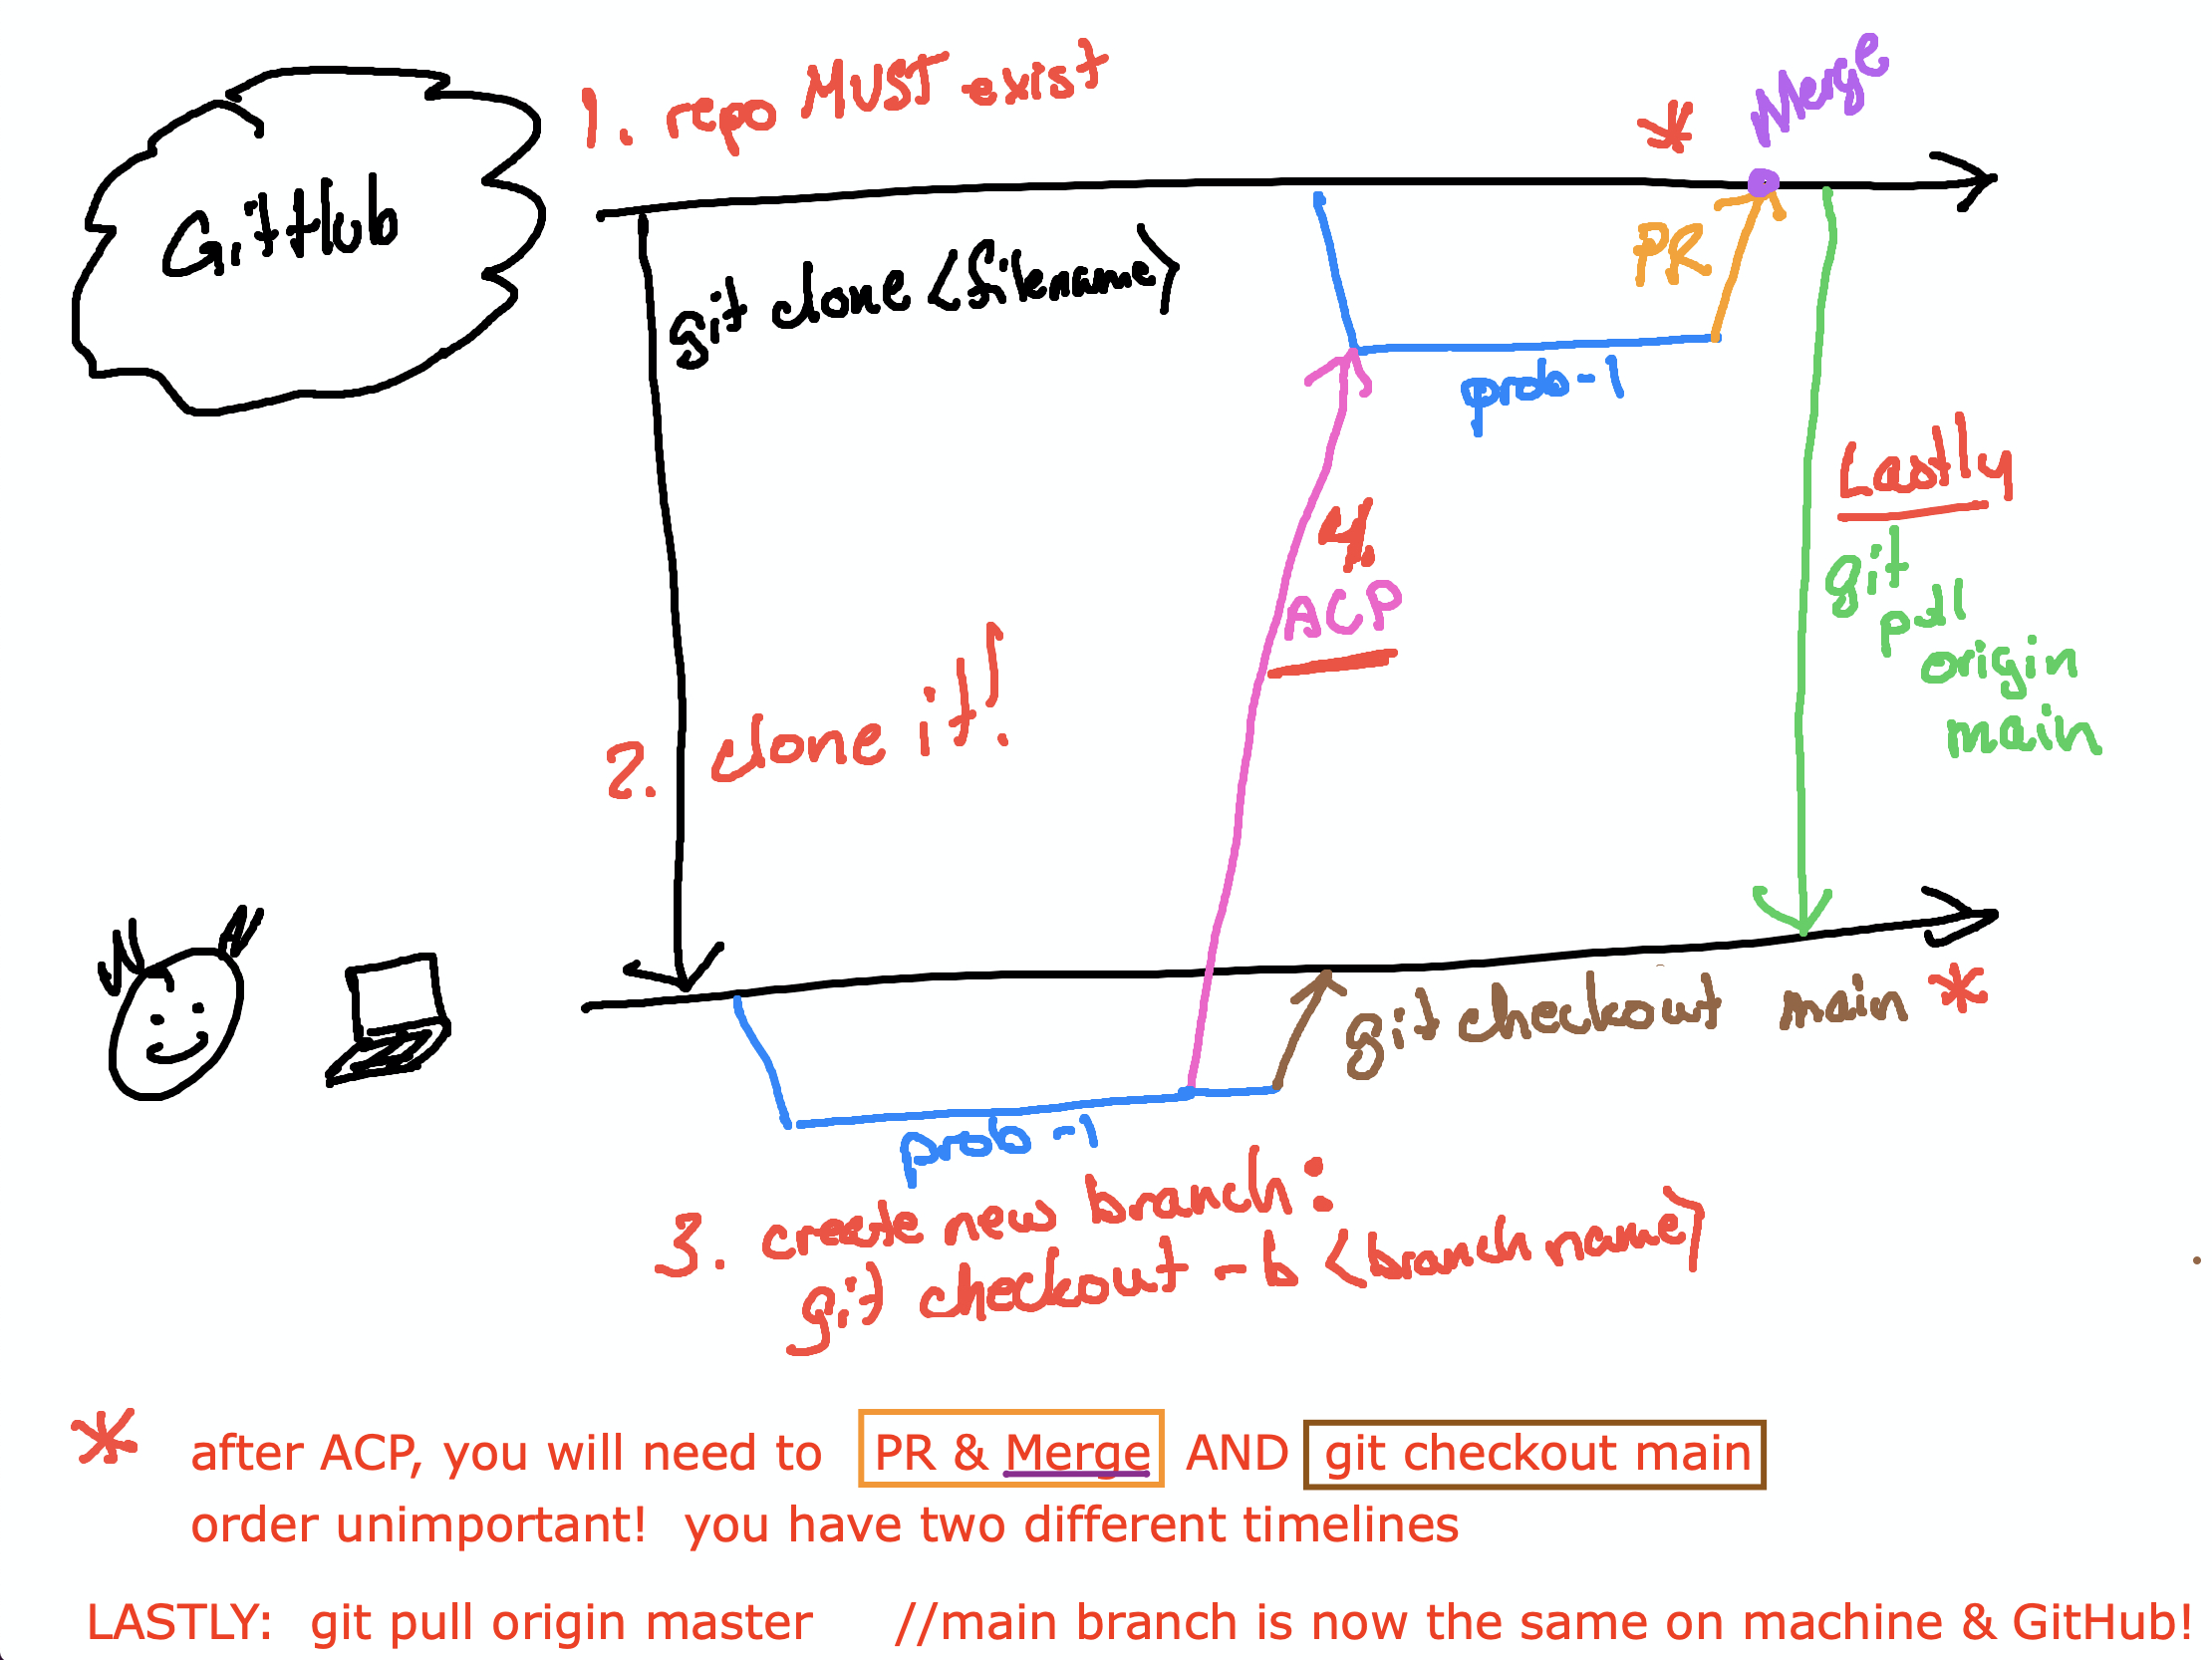 GitHub
1. repo MUST exist
*
Merge
git clone <filename>
PR
prob-1
Lastly
git
pull
origin
main
4.
ACP
2. clone it!
git checkout main *
prob-1
3. create new branch:
git checkout -b <branch name>
* after ACP, you will need to PR & Merge AND git checkout main
order unimportant! you have two different timelines
LASTLY: git pull origin master //main branch is now the same on machine & GitHub!